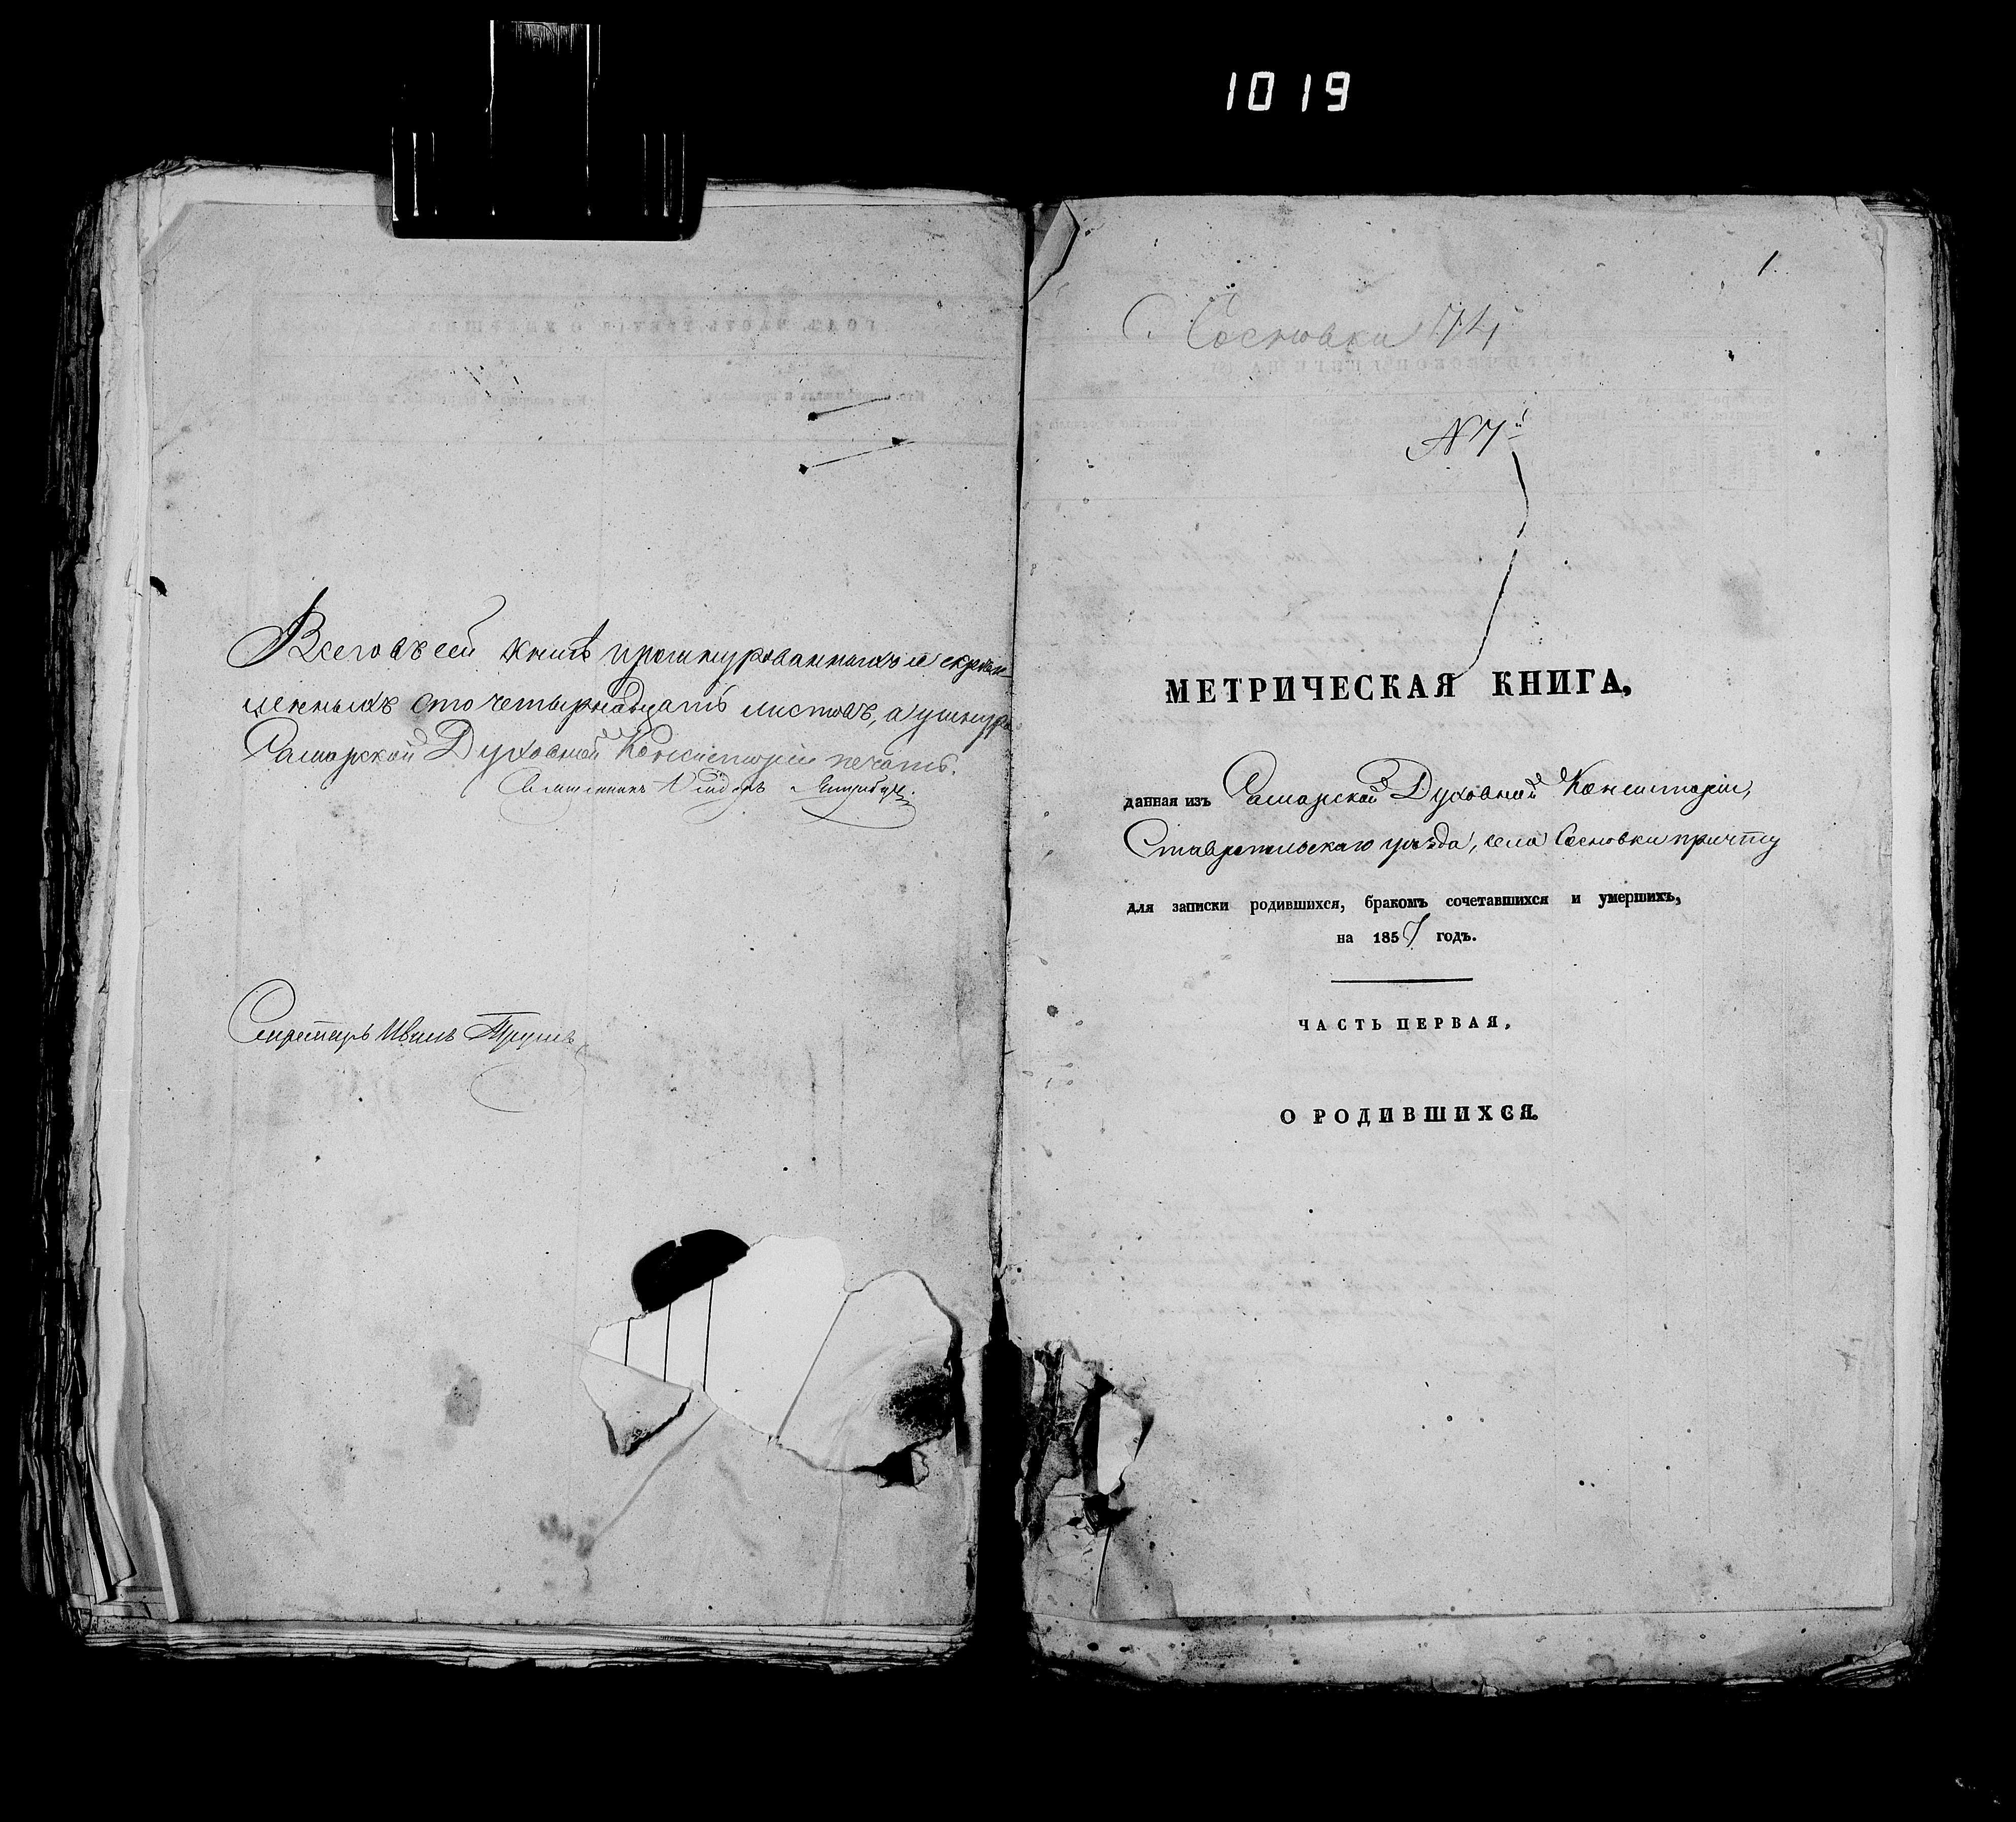 1019
Всего въ сей книгѣ прошнурованныхъ и скрѣп-
ленныхъ сто четырнадцать листовъ, а у шнура
Самарской Духовной Консисторіи печать.
Священникъ
Секретарь Иванъ
1.
С. Сосновки 174
№ 7й
МЕТРИЧЕСКАЯ КНИГА,
данная изъ Самарской Духовной Консисторіи,
Ставропольскаго уѣзда, села Сосновки причту
для записки родившихся, бракомъ сочетавшихся и умершихъ,
на 1857 годъ.
ЧАСТЬ ПЕРВАЯ,
О РОДИВШИХСЯ.